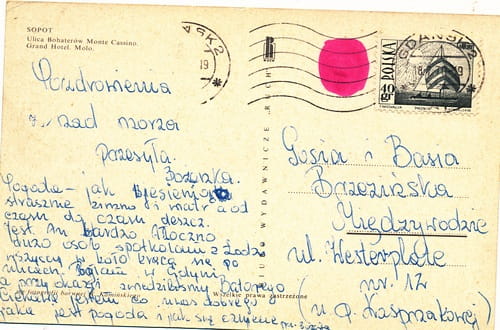 SOPOT
Ulica Bohaterów Monte Cassino.
Grand Hotel. Molo.
GDAŃSK 2
19
GDAŃSK 2
POLSKA
40 GR
BIURO WYDAWNICZE „RUCH”
Pozdrowienia
znad morza
przesyła
Bożenka.
Pogoda – jak
strasznie zimno i wiatr a od
czasu do czasu deszcz.
Jest tu bardzo tłoczno
dużo osób spotkałam z Łodzi
wszyscy w koło kręcą się po
ulicach. Byłam w Gdyni
a przy okazji zwiedziłam Batorego
Ciekawa jestem co u was dobrego
jaka jest pogoda i jak się czujecie
Wszelkie prawa zastrzeżone
Gosia i Basia
Brzezińska
Międzywodzie
ul. Westerplatte
nr. 12
u p. Kasprzakowej